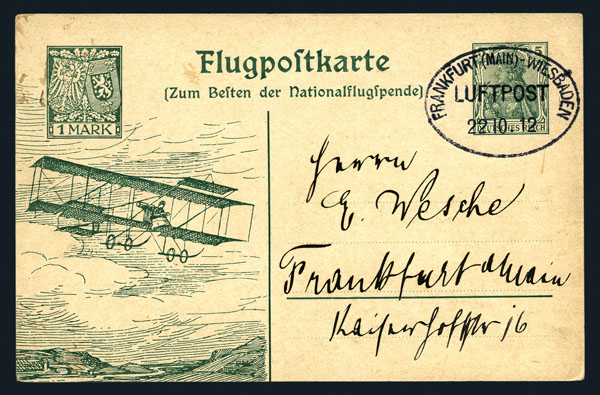 Flugpostkarte
(Zum Besten der Nationalflugspende)
1 MARK
FRANKFURT (MAIN)-WIESBADEN
LUFTPOST
22.10.12
5
REICH
Herrn
E. Wesche
Frankfurt a Main
Kaiserhofstr 16